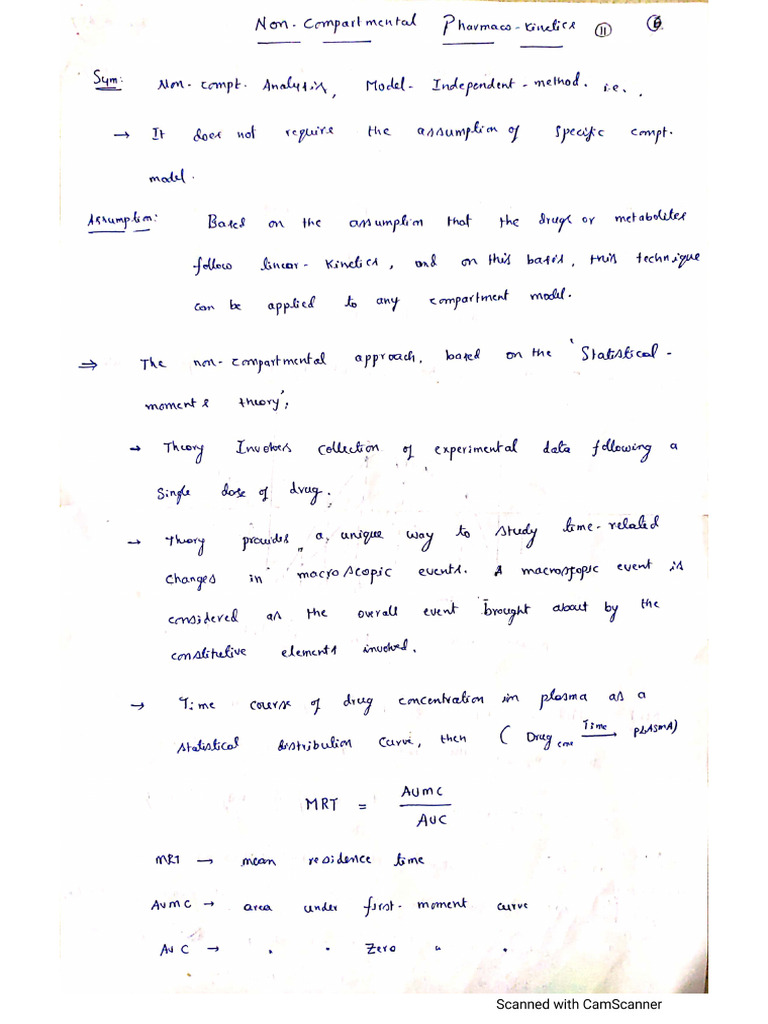 Non-Compartmental Pharmaco-kinetics 11 6
Sym: Non-compt. Analysis, Model-Independent-method. i.e.,
→ It does not require the assumption of specific compt.
model.
Assumption: Based on the assumption that the drugs or metabolites
follow linear-kinetics, and on this basis, this technique
can be applied to any compartment model.
⇒ The non-compartmental approach, based on the 'Statistical-
moments theory';
→ Theory Involves collection of experimental data following a
single dose of drug.
→ Theory provides a, unique way to study time-related
changes in macroscopic events. A macroscopic event is
considered as the overall event brought about by the
constitutive elements involved.
→ Time course of drug concentration in plasma as a
statistical distribution curve, then ( Drug conc Time → PLASMA)
MRT = AUMC
AUC
MRT → mean residence time
AUMC → area under first-moment curve
AUC → " " Zero " "
Scanned with CamScanner